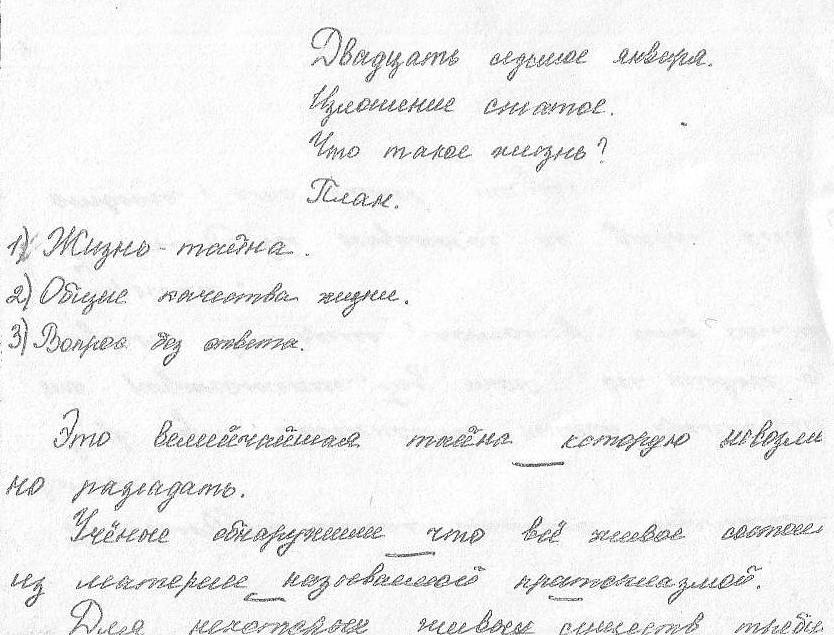 Двадцать седьмое января.
Изложение сжатое.
Что такое жизнь?
План.
1) Жизнь - тайна.
2) Общие качества жизни.
3) Вопрос без ответа.
Это величайшая тайна которую невозм
но разгадать.
Учёные обнаружили что всё живое состои
из материи называемой пратоплазмой.
Для некоторых живых существ требу